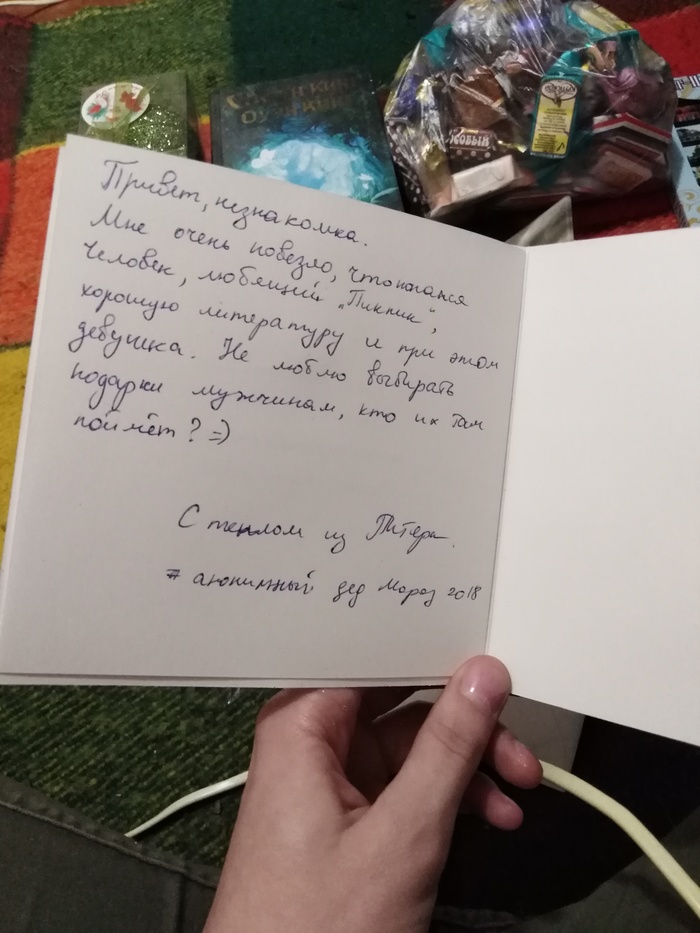 Привет, незнакомка.
Мне очень повезло, что попался
человек, любящий „Пикник“,
хорошую литературу и при этом
девушка. Не люблю выбирать
подарки мужчинам, кто их там
поймёт? =)
С теплом из Питера.
# анонимный дед Мороз 2018